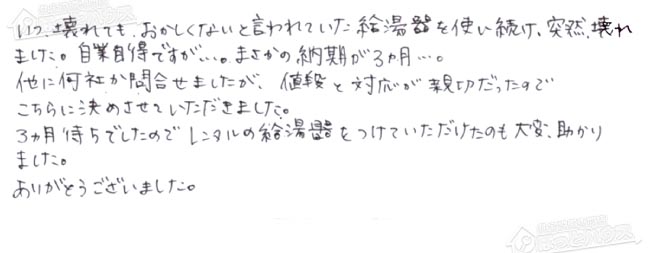 いつ、壊れても、おかしくないと言われていた給湯器を使い続け、突然、壊れ
ました。自業自得ですが…。まさかの納期が3ヵ月…。
他に何社か問合せましたが、値段と対応が親切だったので
こちらに決めさせていただきました。
3ヵ月待ちでしたのでレンタルの給湯器をつけていただけたのも大変、助かり
ました。
ありがとうございました。